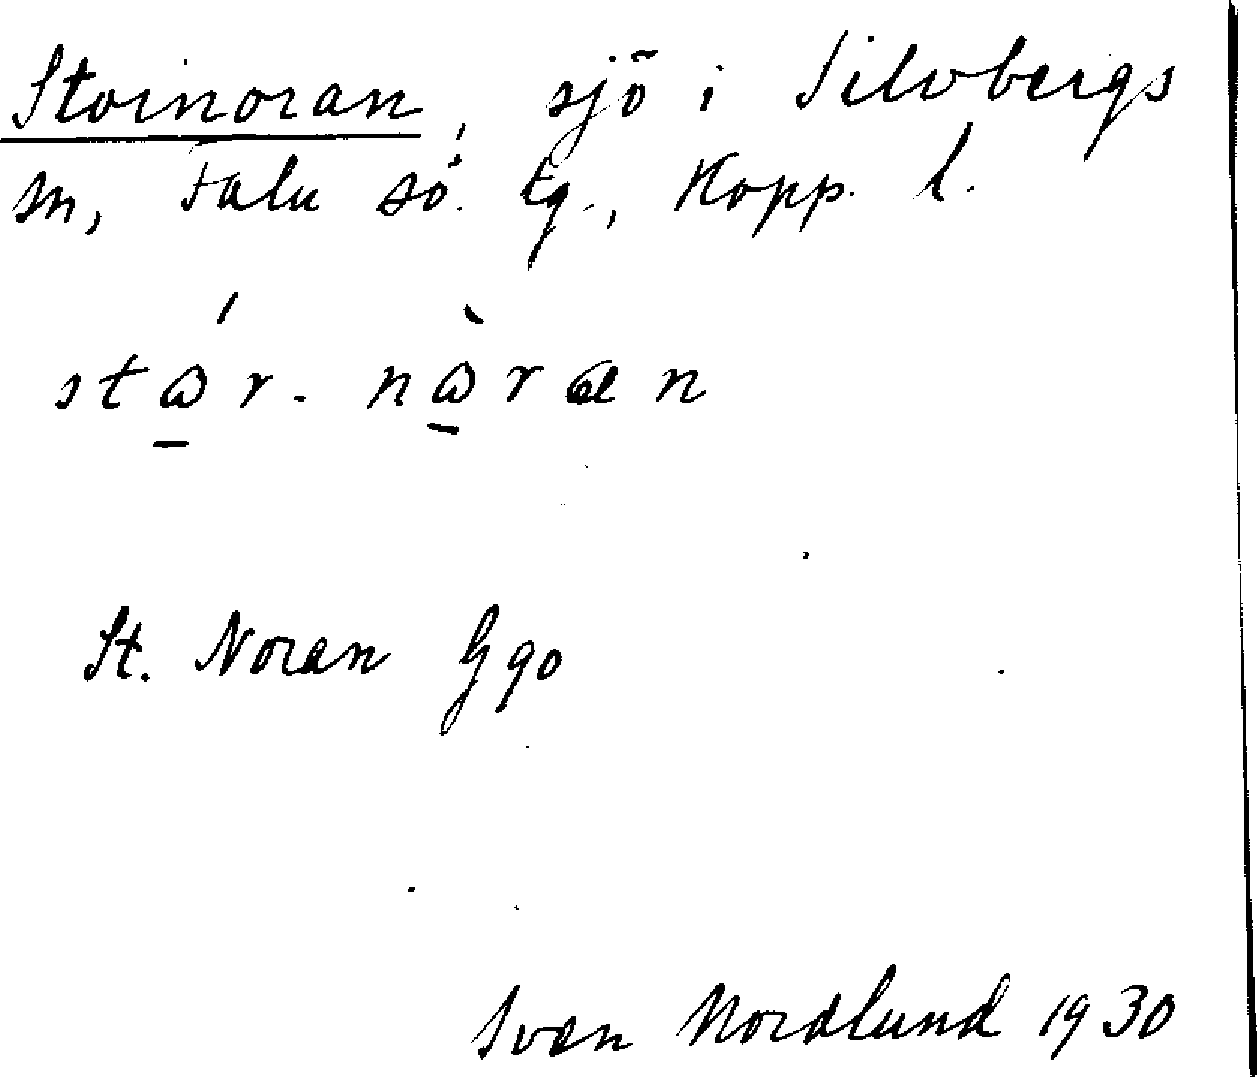 Stornoran, sjö i Silvbergs
sn, Falu sö. tg., Kopp. l.
stɷ́r. nɷ̀ræn
St. Noran Ggo
Sven Nordlund 1930